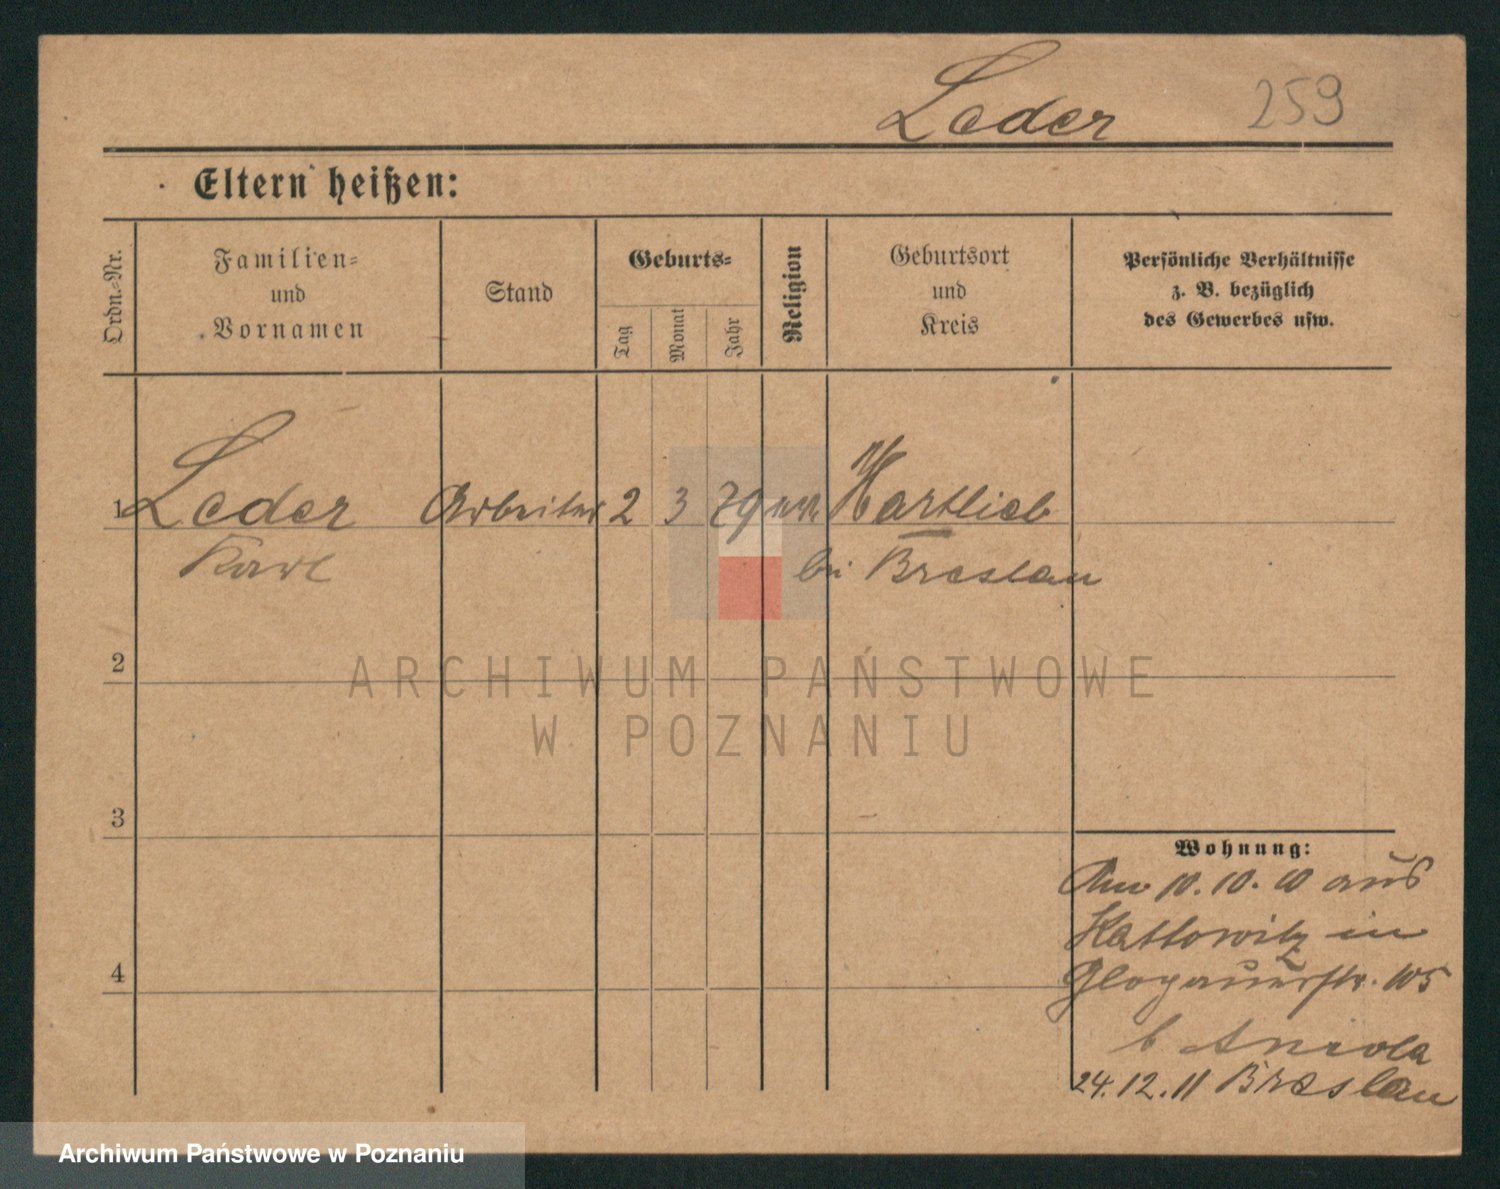 Leder 259
Eltern heißen:
Ordn.-Nr.
Familien-
und
Vornamen
Stand
Geburts-
Tag
Monat
Jahr
Religion
Geburtsort
und
Kreis
Persönliche Verhältnisse
z. B. bezüglich
des Gewerbes usw.
1 Leder Arbeiter 2 3 79 Hartlieb
Karl bei Breslau
2
3
4
Wohnung:
Am 10.10.10 aus
Kattowitz in
Glogauerstr. 105
b.
24.12.11 Breslau
ARCHIWUM PAŃSTWOWE
W POZNANIU
Archiwum Państwowe w Poznaniu